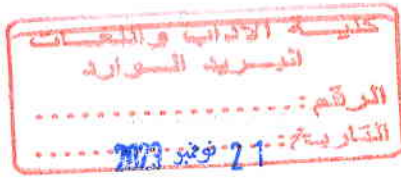 كلية الآداب واللغات
البريد الوارد
الرقم : ....................
التاريخ : 21 نوفمبر 2023